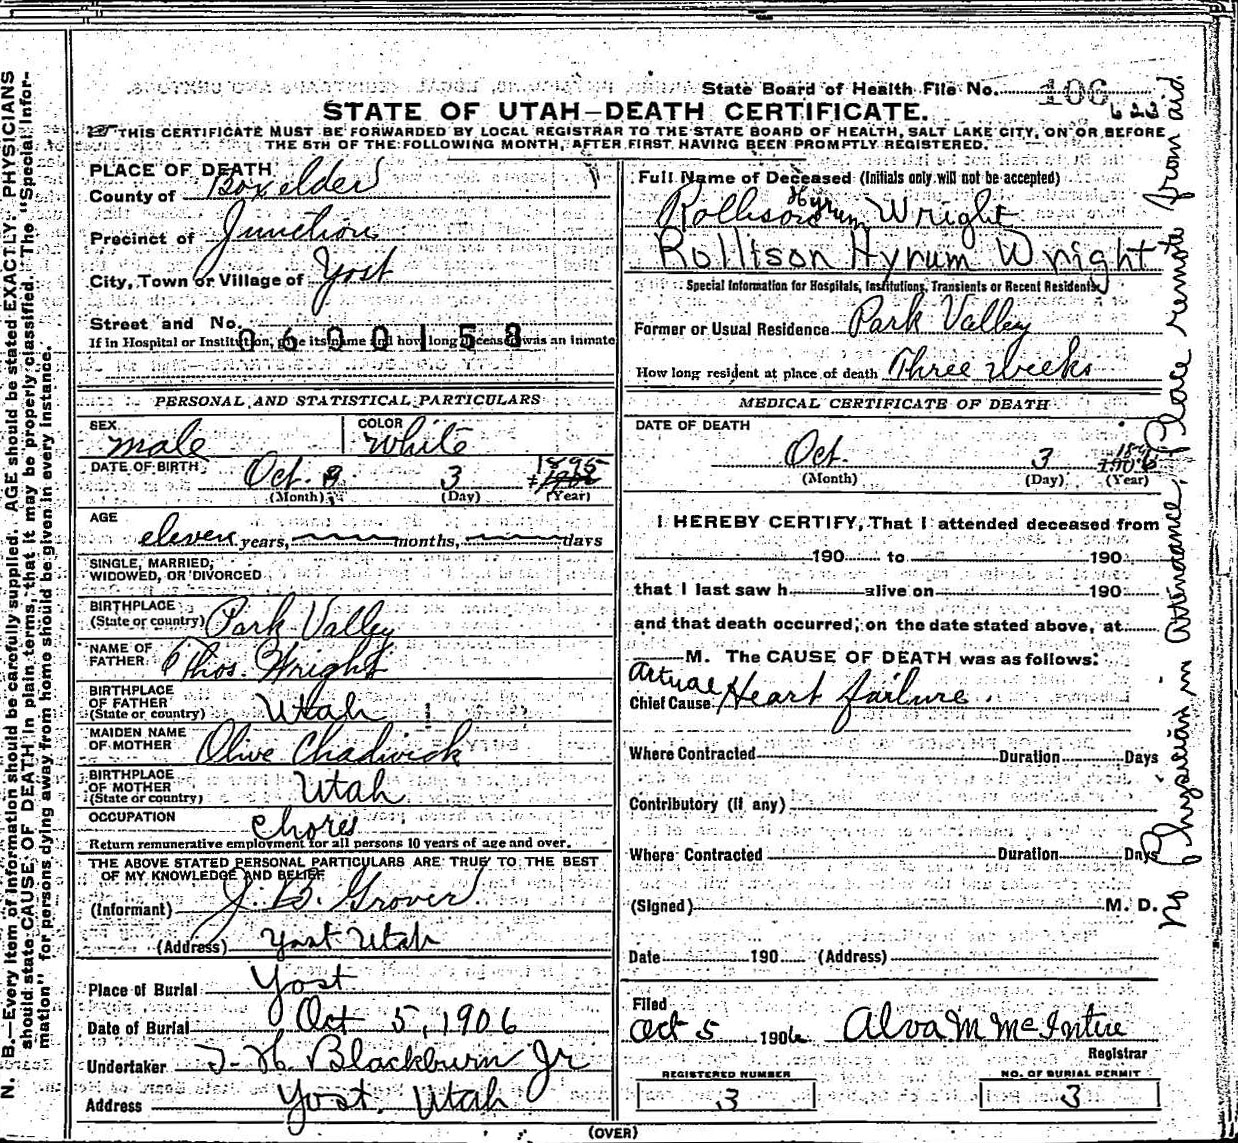 State Board of Health File No. 106
622
STATE OF UTAH—DEATH CERTIFICATE.
THIS CERTIFICATE MUST BE FORWARDED BY LOCAL REGISTRAR TO THE STATE BOARD OF HEALTH, SALT LAKE CITY, ON OR BEFORE
THE 5TH OF THE FOLLOWING MONTH, AFTER FIRST HAVING BEEN PROMPTLY REGISTERED.
PLACE OF DEATH
County of Boxelder
Precinct of Junction
City, Town or Village of Yost
Street and No.
0600158
If in Hospital or Institution, give its name and how long deceased was an inmate
PERSONAL AND STATISTICAL PARTICULARS
SEX male
COLOR white
DATE OF BIRTH Oct. 3 1895
(Month) (Day) (Year)
AGE
eleven years, months, days
SINGLE, MARRIED,
WIDOWED, OR DIVORCED
BIRTHPLACE
(State or country) Park Valley
NAME OF
FATHER Thos. Wright
BIRTHPLACE
OF FATHER
(State or country) Utah
MAIDEN NAME
OF MOTHER Olive Chadwick
BIRTHPLACE
OF MOTHER
(State or country) Utah
OCCUPATION chores
Return remunerative employment for all persons 10 years of age and over.
THE ABOVE STATED PERSONAL PARTICULARS ARE TRUE TO THE BEST
OF MY KNOWLEDGE AND BELIEF
(Informant) J. B. Grover
(Address) Yost Utah
Place of Burial Yost
Date of Burial Oct 5, 1906
Undertaker T. H. Blackburn Jr
Address Yost. Utah
Full Name of Deceased (Initials only will not be accepted)
Rollison Hyrum Wright
Rollison Hyrum Wright
Special Information for Hospitals, Institutions, Transients or Recent Residents.
Former or Usual Residence Park Valley
How long resident at place of death Three weeks
MEDICAL CERTIFICATE OF DEATH
DATE OF DEATH
Oct. 3 1906
(Month) (Day) (Year)
I HEREBY CERTIFY, That I attended deceased from
190 to 190
that I last saw h alive on 190
and that death occurred, on the date stated above, at
M. The CAUSE OF DEATH was as follows:
Actual
Chief Cause Heart failure.
Where Contracted Duration Days
Contributory (if any)
Where Contracted Duration Days
(Signed) M. D.
Date 190 (Address)
Filed
Oct 5 1906 Alva M McIntire
Registrar
REGISTERED NUMBER
3
NO. OF BURIAL PERMIT
3
(OVER)
No Physician in Attendance, Place remote from aid
N. B.—Every item of information should be carefully supplied. AGE should be stated EXACTLY. PHYSICIANS
should state CAUSE OF DEATH in plain terms, that it may be properly classified. The "Special Information"
for persons dying away from home should be given in every instance.